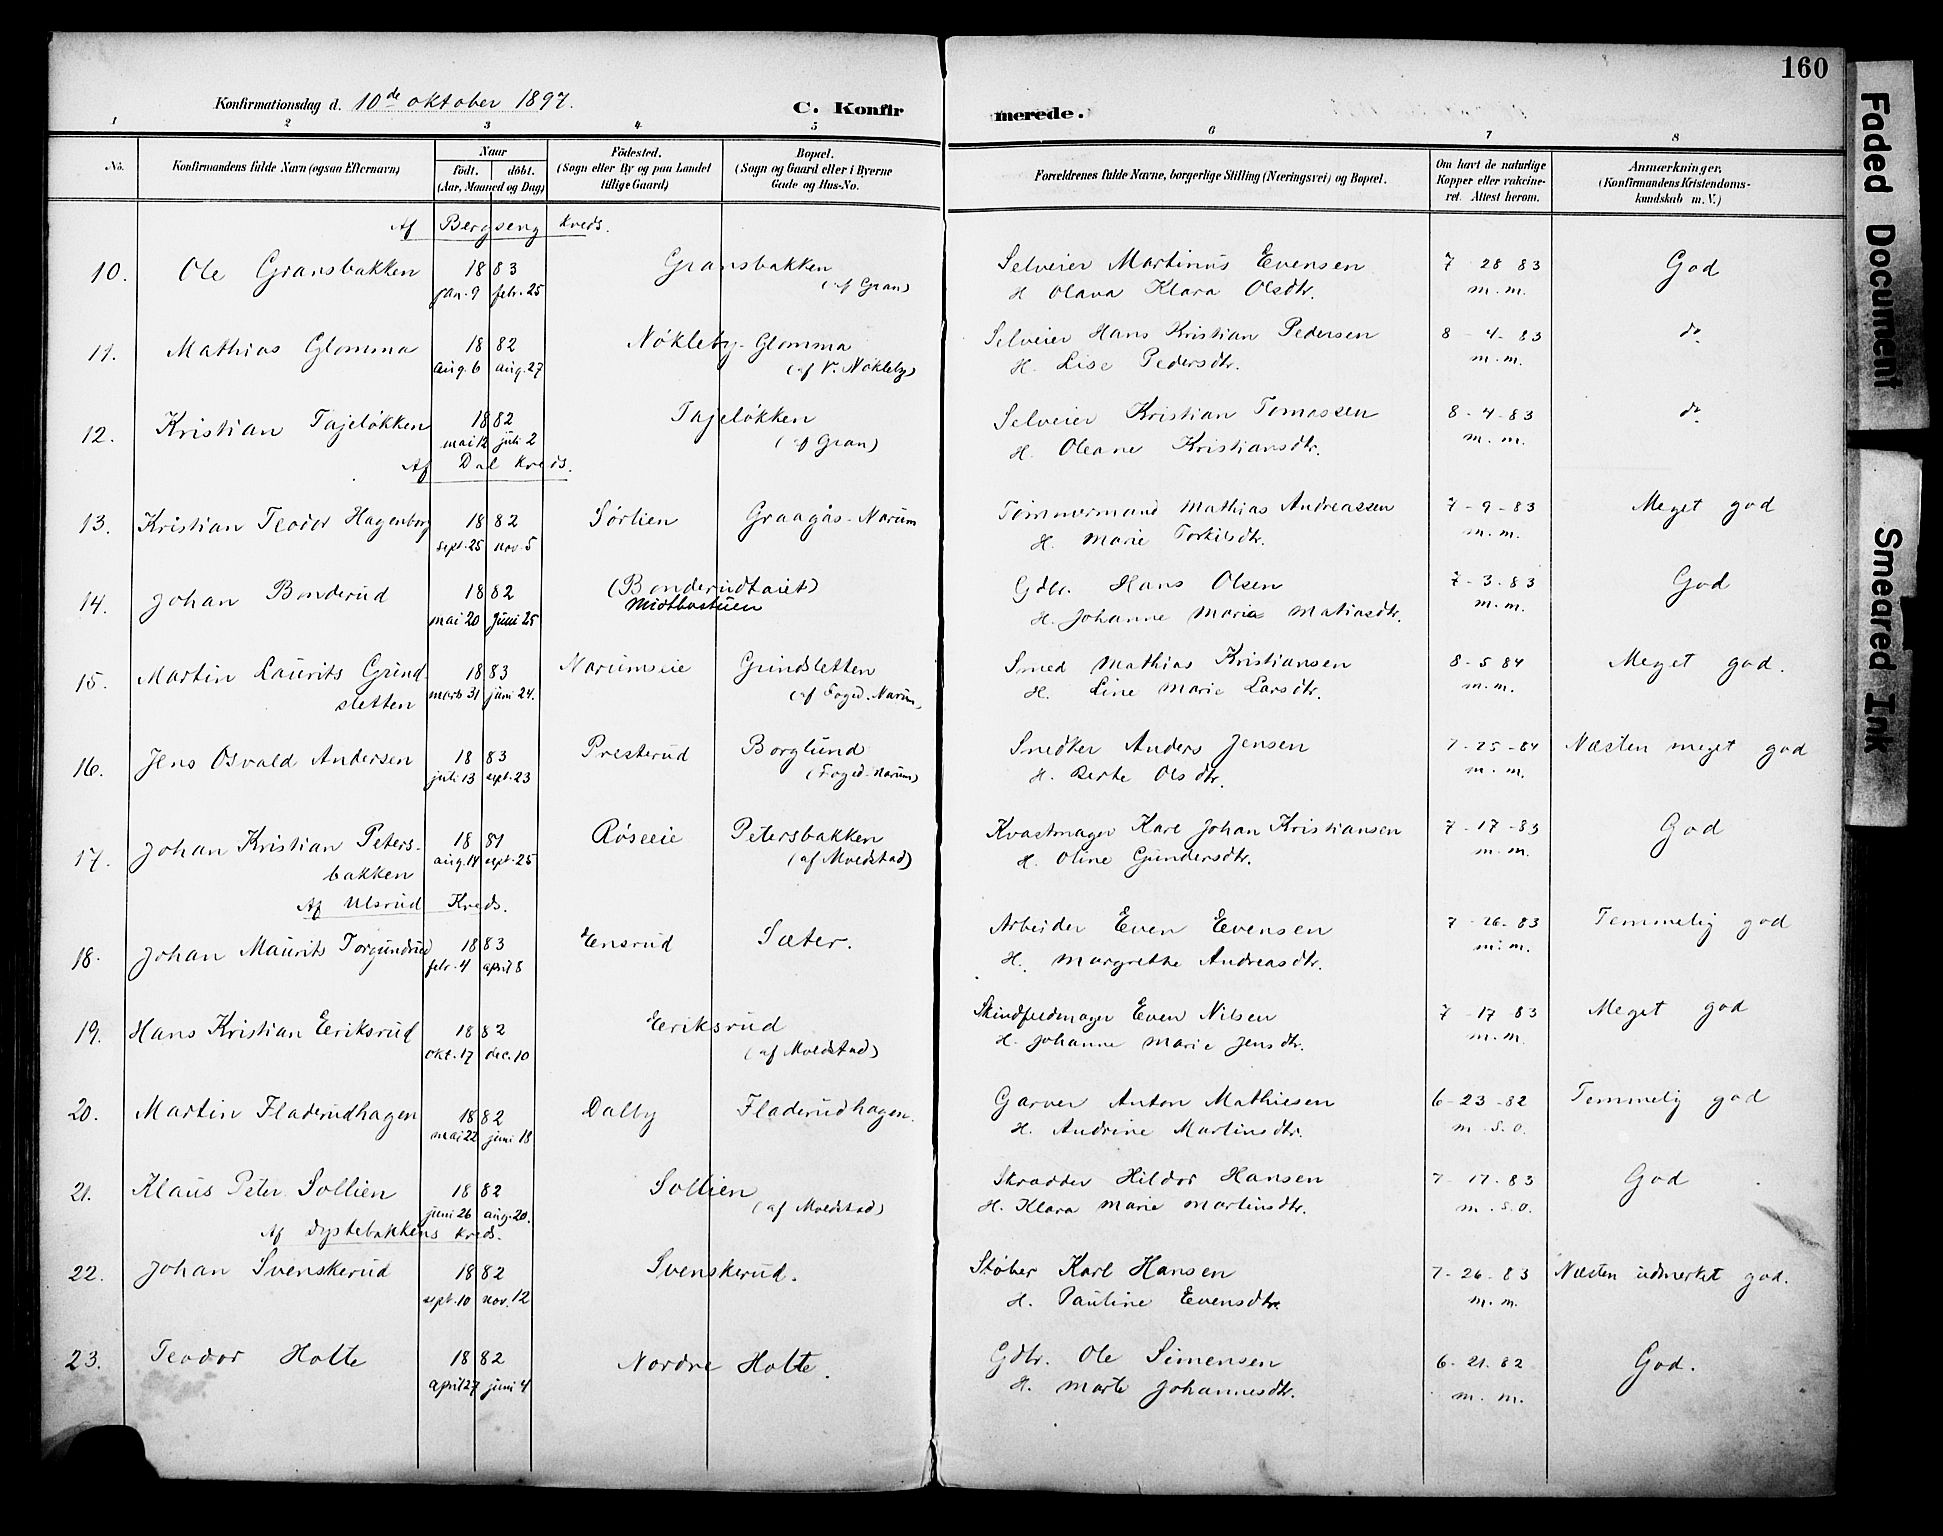 160
Konfirmationsdag d. 10de oktober 1897.
C. Konfirmerede.
1 2 3 4 5 6 7 8
No.
Konfirmandens fulde Navn (ogsaa Efternavn)
Naar
født. døbt.
(Aar, Maaned og Dag)
Fødested.
(Sogn eller By og paa Landet
tillige Gaard)
Bopæl.
(Sogn og Gaard eller i Byerne
Gade og Hus-No.
Forældrenes fulde Navne, borgerlige Stilling (Næringsvei) og Bopæl.
Om havt de naturlige
Kopper eller vakcine-
ret. Attest herom.
Anmærkninger.
(Konfirmandens Kristendoms-
kundskab m. V.)
Af Bergseng Kreds.
10. Ole Gransbakken 1883 Gransbakken Selveier Martinus Evensen 7 - 28 83 God
jan. 9 febr. 25 (af Gran) H Olava Klara Olsdtr. m. m.
11. Mathias Glomma 1882 Nökleby-Glomma Selveier Hans Kristian Pedersen 8 - 4 - 83 do
aug. 6 aug. 27 (af V. Nökleby) H. Lise Pedersdtr. m. m.
12. Kristian Tajeløkken 1882 Tajeløkken Selveier Kristian Tomassen 8 - 4 - 83 do
mai 12 juli 2 (af Gran) H. Oleane Kristiansdtr. m. m.
Af Dal Kreds.
13. Kristian Teodor Hagenborg 1882 Sørlien Graagås-Narum Tømmermand Mathias Andreassen 7 - 9 - 83 Meget god
sept. 25 nov. 5 H. Marie Torkilsdtr. m. m.
14. Johan Bonderud 1882 (Bonderudtaiet) Gdbr. Hans Olsen 7 - 3 - 83 God
Midtbøstuen
mai 20 Juni 25 H. Johanne Marie Matiasdtr. m. m.
15. Martin Laurits Grind- 1883 Narumseie Grindsletten Smed Mathias Kristiansen 8 - 5 84 Meget god.
sletten marts 31 juni 24. (af Foged-Narum) H. Line Marie Larsdtr. m. m.
16. Jens Osvald Andersen 1883 Presterud Borglund Snedker Anders Jensen 7 - 25 - 84 Næsten meget god
juli 13 sept. 23 (Foged-Narum) H. Berte Olsdtr. m. m.
17. Johan Kristian Peters- 1881 Røseeie Petersbakken Kvastmager Karl Johan Kristiansen 7 - 17 - 83 God
bakken aug. 14 sept. 25 (af Moldstad) H. Oline Gundersdtr. m. m.
Af Ulsrud Kreds.
18. Johan Maurits Torgundrud 1883 Eensrud Sæter. Arbeider Even Evensen 7 - 26 - 83 Temmelig god
febr. 4 april 8 H. Margrethe Andreasdtr. m. m.
19. Hans Kristian Eeriksrud 1882 Eeriksrud Skindfeldmager Even Nilsen 7 - 17 - 83 Meget god
okt. 17 dec. 10 (af Moldstad) H. Johanne Marie Jensdtr. m. m.
20. Martin Fladerudhagen 1882 Dalby Fladerudhagen. Garver Anton Mathiesen 6 - 23 - 82 Temmelig god
mai 22 juni 18 H. Andrine Martinsdtr. m. s. o.
21. Klaus Peter Sollien 1882 Sollien Skrædder Hildor Hansen 7 - 17. 83 God
juni 26 aug. 20. (af Moldstad) H. Klara Marie Martinsdtr. m. s. o.
Af Dystebakkens Kreds.
22. Johan Svenskerud 1882 Svenskerud. Støber Karl Hansen 7 - 26 - 83 Næsten udmerket god.
sept. 10 nov. 12 H. Pauline Evensdtr. m. m.
23. Teodor Holte 1882 Nordre Holte. Gdbr. Ole Simensen 6 - 21. 82 God.
april 27 juni 4 H. Marte Johannesdtr. m. m.
Faded Document
Smeared Ink